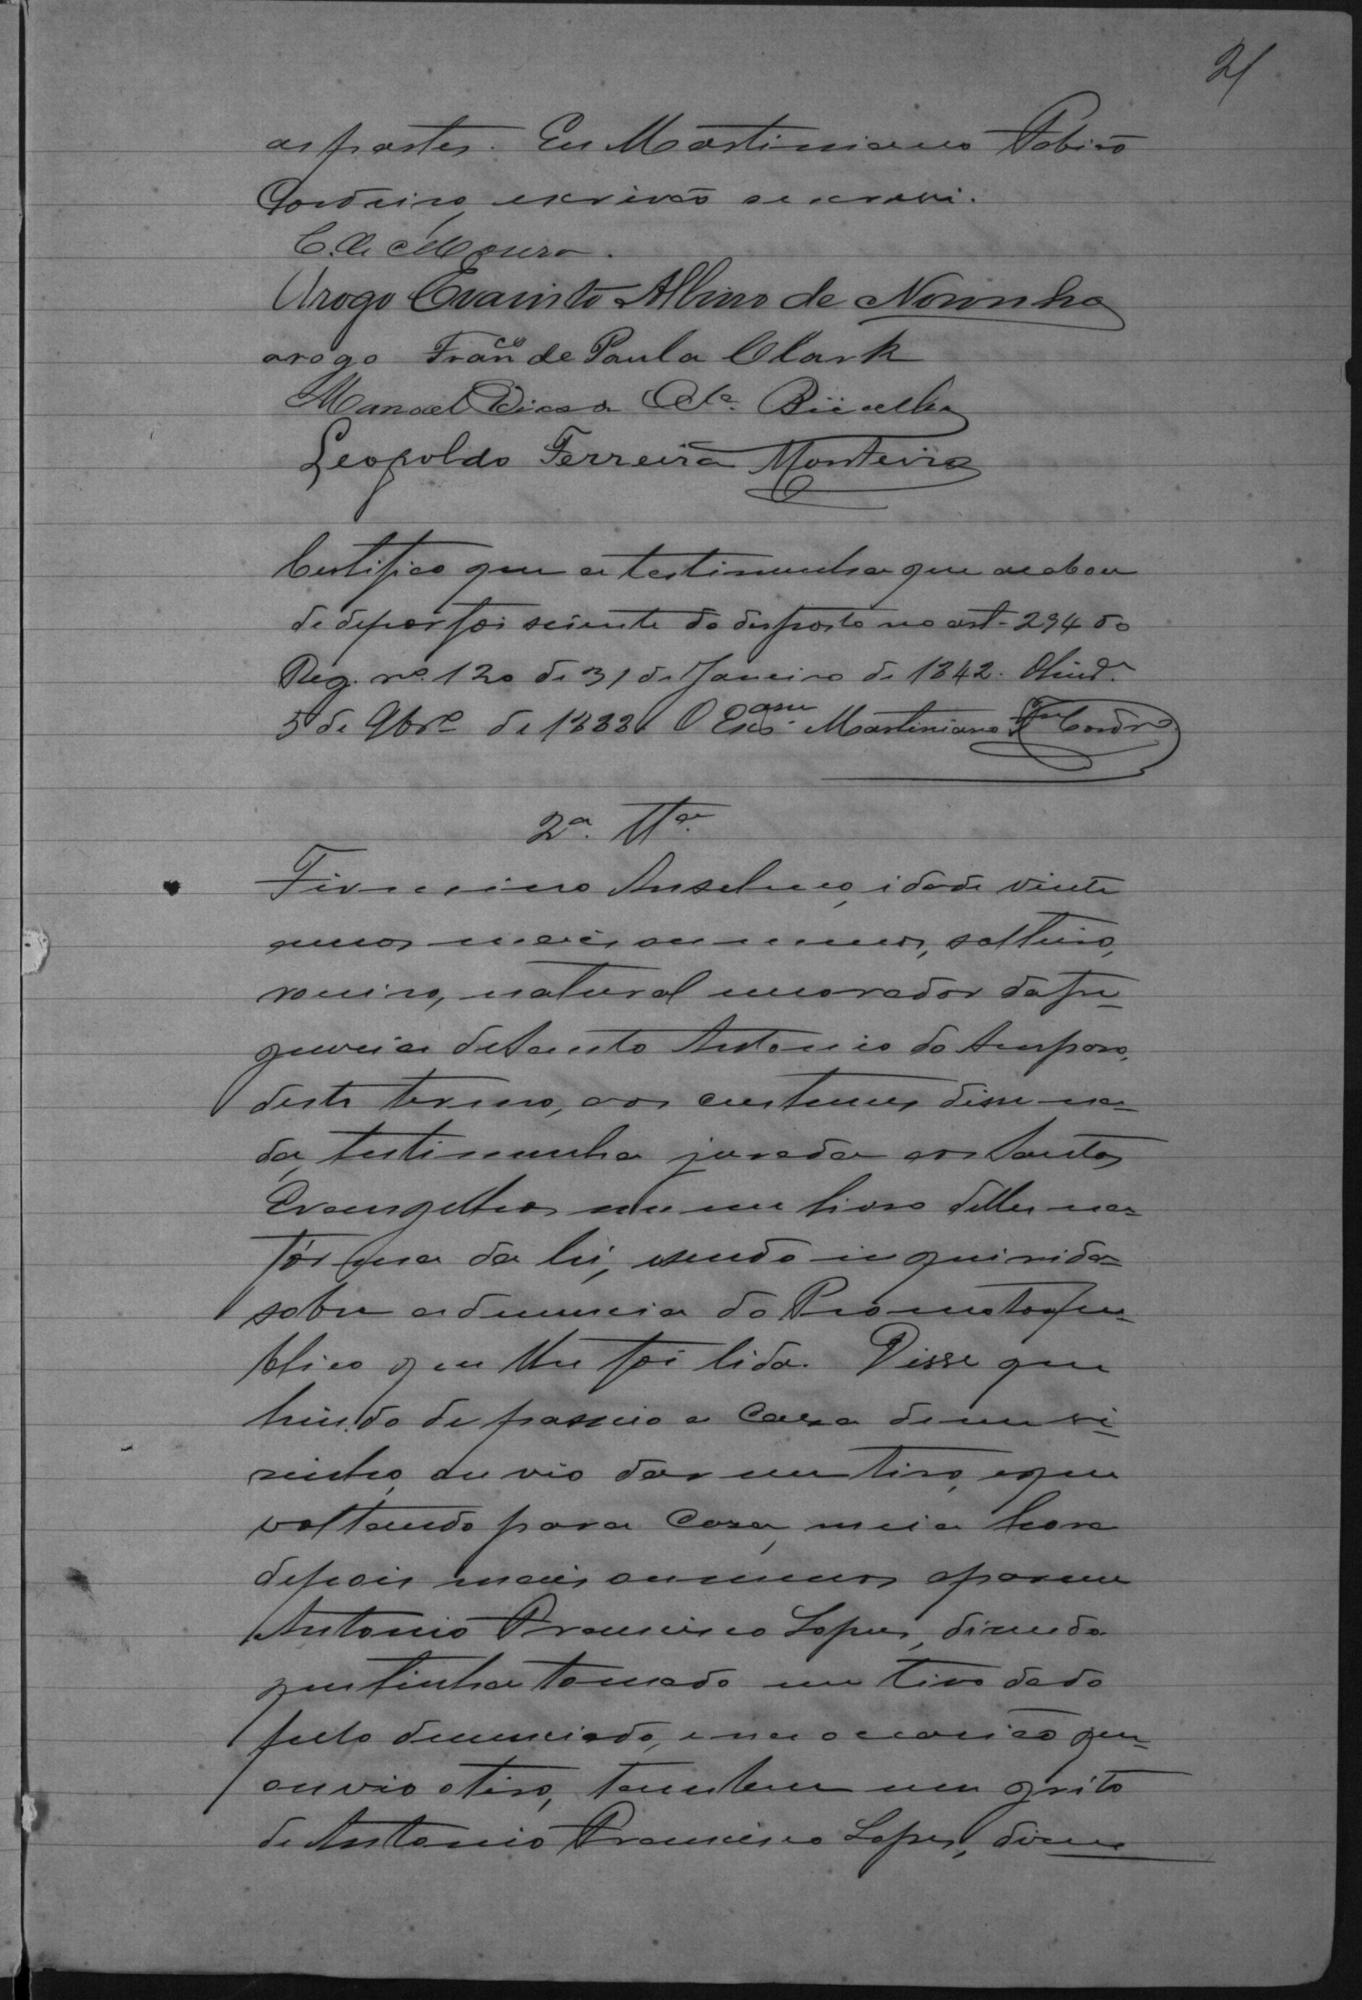 21
as partes. Eu Martiniano
Cordeiro, escrivão o escrevi.
C. de Moura.
Arogo Evaristo Albino de Noronha
arogo Fran.co de Paula Clark
Manoel
Leopoldo Ferreira Monteiro
Certifico que a testimunha que acabou
de depor foi sciente do disposto no art. 294 do
Reg. nº 120 de 31 de Janeiro de 1842.
5 de 9brº de 1888. O Esc.am Martiniano Cordrº
2ª. Ttª.
Firmino Anselmo, idade vinte
annos mais ou menos, solteiro,
natural morador da fre-
guesia de Santo Antonio do Amparo,
deste termo, aos custumes disse na-
da, testimunha jurada aos Santos
Evangelhos em um livro delles na
fórma da lei, e sendo inquirida
sobre a denuncia do Promotor pu-
blico que lhe foi lida. Disse que
hindo de passeio a casa de um vi-
sinho, ouvio dar um tiro, e que
voltando para casa, meia hora
depois mais ou menos appareceu
Antonio Francisco Lopes, disendo
que tinha tomado um tiro dado
pelo denunciado, e na occasião que
ouvio o tiro, tambem um grito
de Antonio Francisco Lopes,